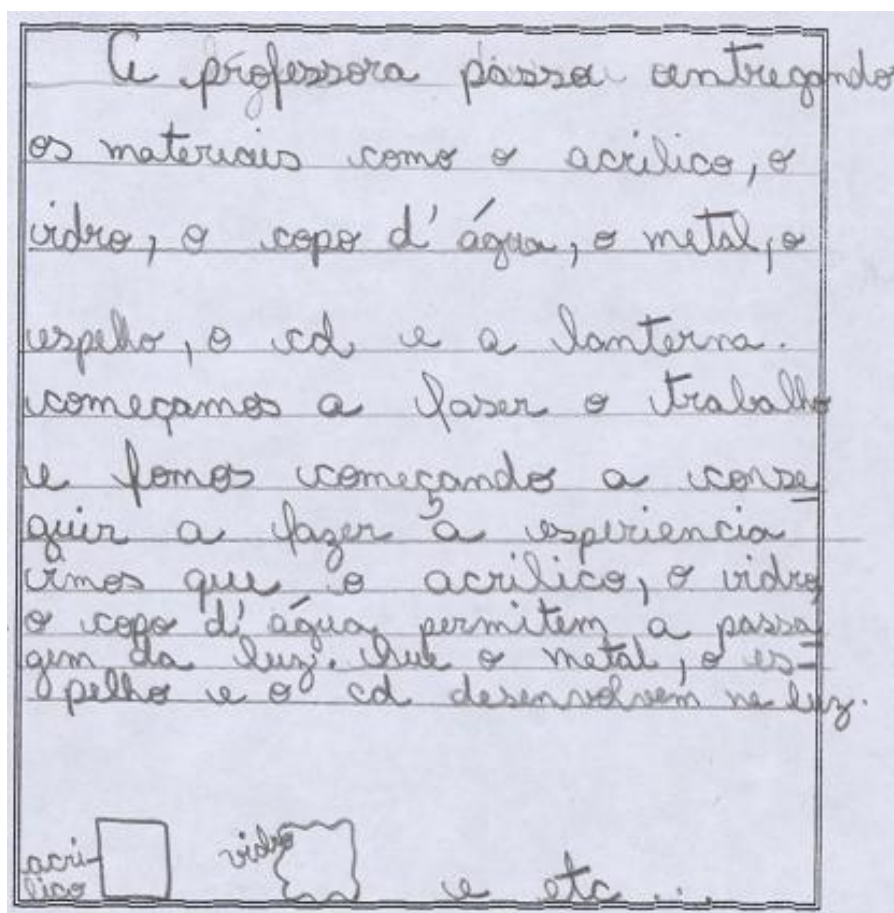 A professora passa entregando
os materiais como o acrilico, o
vidro, o copo d' água, o metal, o
espelho, o cd e a lanterna.
começamos a faser o trabalho
e fomos começando a conse
guir a fazer a espiriencia
vimos que o acrilico, o vidro,
o copo d' água permitem a passa
gem da luz. Que o metal, o es-
pelho e o cd desenvolvem na luz.
acri-
lico
vidro
e etc ...